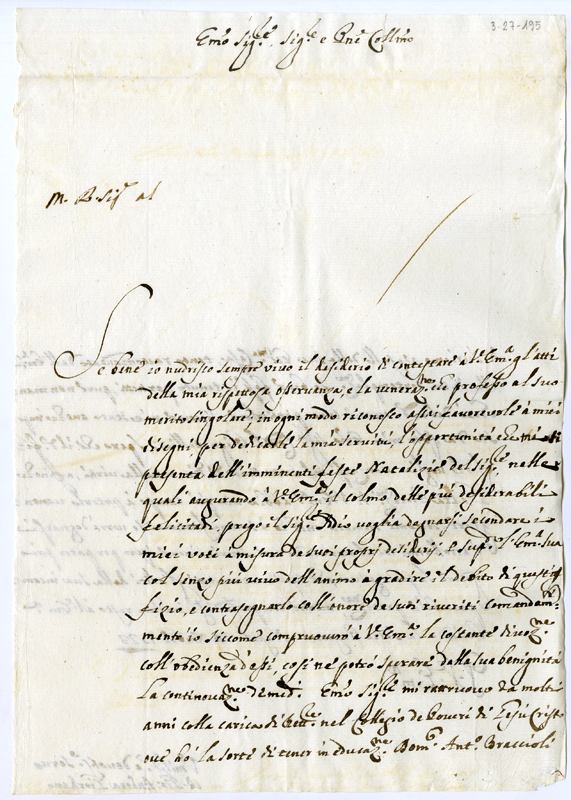 3-27-195
Emo Sigre, Sigre e Prne Collmo
M. R. Sigre al
Se bene io nudrisco sempre vivo il desiderio di contestare à V. Ema gl'atti
della mia rispettosa osservanza, e la venerazne che professo al suo
merito singolare, in ogni modo riconosco assai favorevole à miei
disegni, per dedicarle la mia servitù, l'opportunità che mi si
presenta dell'imminenti feste Natalizie del Sigre, nelle
quali augurando à V. Ema il colmo delle più desiderabili
felicitadi, prego il Sigre Iddio voglia degnarsi secondare i
miei voti à misura de suoi proprj desiderj, e suppco l'Ema sua
col senzo più vivo dell'animo à gradire il debito di questo uf
fizio, e contrasegnarlo coll'onore de suoi riveriti comandam.
mentr'io siccome comproverò à V. Ema la costante divozne
coll'obedienza d'essi, così ne potrò sperare dalla sua benignità
la continovazne de med. Emo Sigre mi ritruovo da molti
anni colla carica di Rettre nel Collegio de Poveri di Gesù Cristo
ove hò la sorte di tener in educazne Domco Anto Braccioli